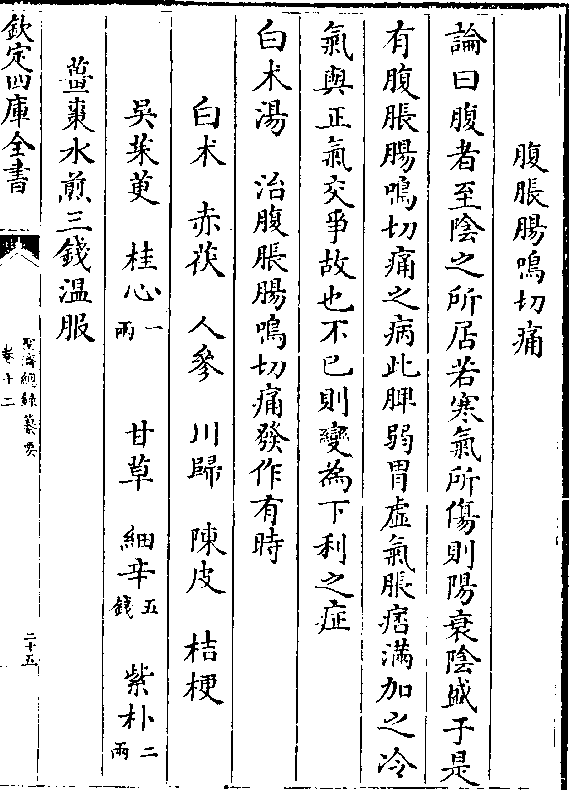 腹脹腸鳴切痛
論曰腹者至陰之所居若寒氣所傷則陽衰陰盛于是
有腹脹腸鳴切痛之病此脾弱胃虛氣脹痞滿加之冷
氣與正氣交爭故也不已則變為下利之症
白术湯　治腹脹腸鳴切痛發作有時
白术　赤茯　人參　川歸　陳皮　桔梗
吳茱萸　桂心一兩　甘草　細辛五錢　紫朴二兩
薑棗水煎三錢溫服
欽定四庫全書
聖濟總錄纂要
卷十二
二十五